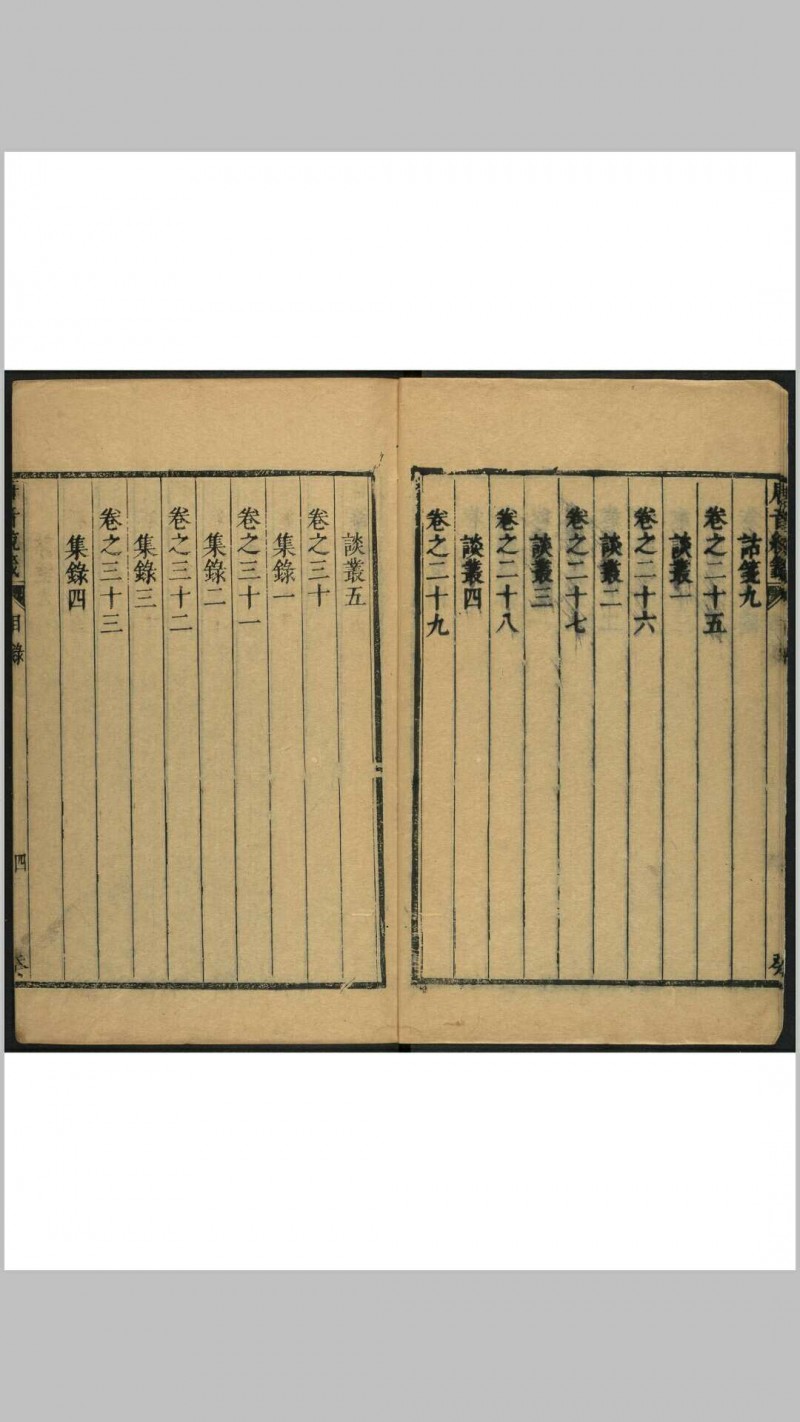 詁箋九
卷之二十五
談叢一
卷之二十六
談叢二
卷之二十七
談叢三
卷之二十八
談叢四
卷之二十九
談叢五
卷之三十
集錄一
卷之三十一
集錄二
卷之三十二
集錄三
卷之三十三
集錄四
目錄
四